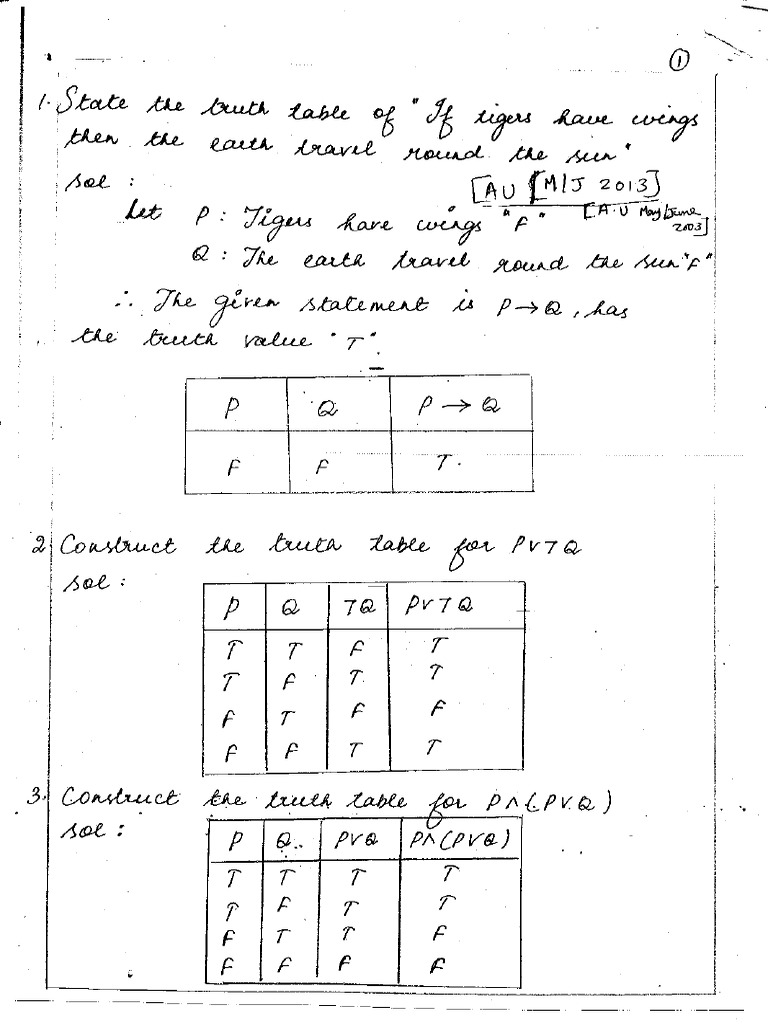 ①
1. State the truth table of "If tigers have wings
then the earth travel round the sun"
sol :
[AU [M/J 2013]
Let P : Tigers have wings "F" [A.U May/June 2003]
Q : The earth travel round the sun "F"
∴ The given statement is P → Q, has
the truth value "T".
P Q P → Q
F F T.
2 Construct the truth table for P∨⊤Q
sol :
P Q ⊤Q P∨⊤Q
T T F T
T F T T
F T F F
F F T T
3. Construct the truth table for P∧(P∨Q)
sol :
P Q.. P∨Q P∧(P∨Q)
T T T T
T F T T
F T T F
F F F F